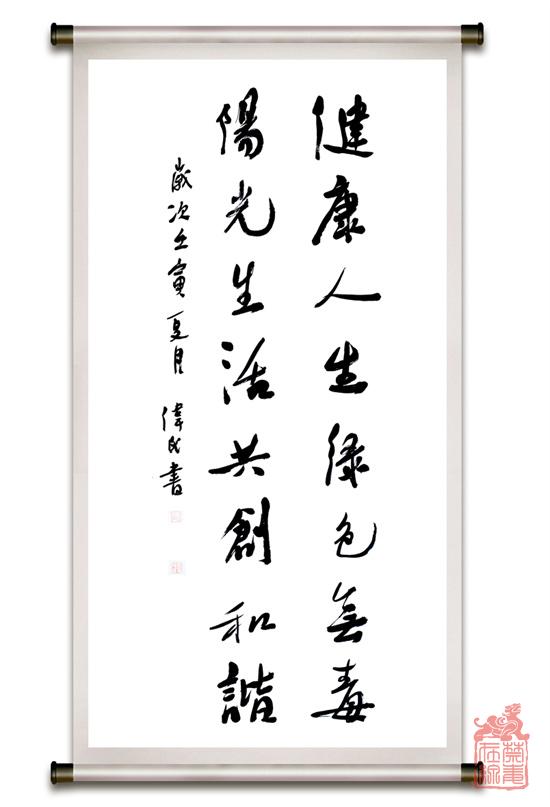 健康人生绿色無毒
陽光生活共創和諧
歲次壬寅夏月 偉民書
禁毒在線